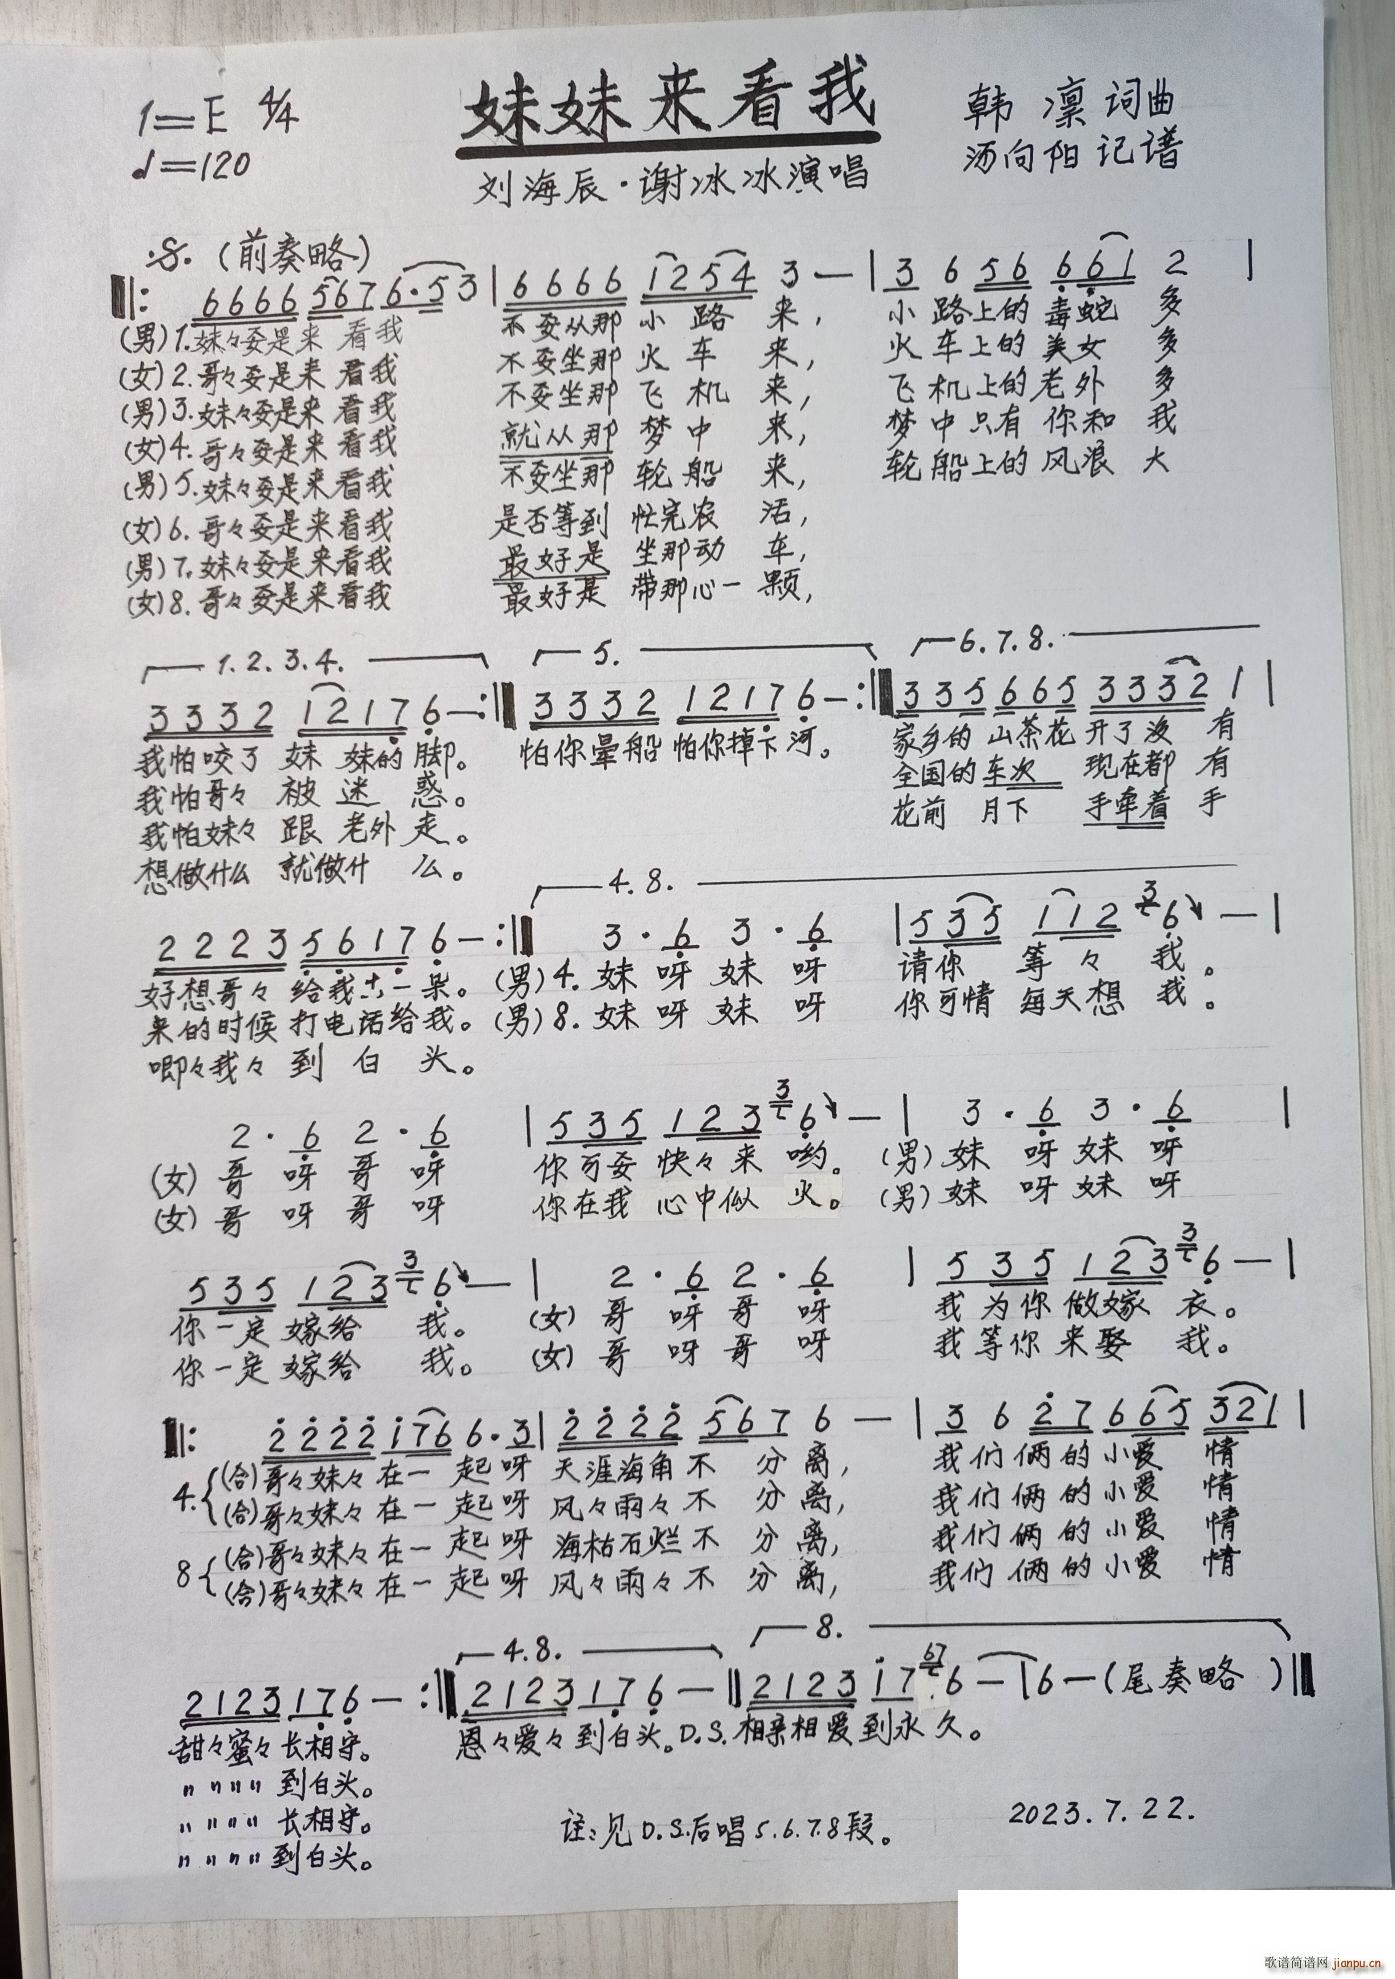 1=E 4/4 妹妹来看我 韩凛词曲
♩=120 刘海辰·谢冰冰演唱 汤向阳记谱
(前奏略)
6666 5676·53 | 6666 1254 3— | 3 6 56 661 2 |
(男)1.妹々要是来看我 不要从那小路来, 小路上的毒蛇多
(女)2.哥々要是来看我 不要坐那火车来, 火车上的美女多
(男)3.妹々要是来看我 不要坐那飞机来, 飞机上的老外多
(女)4.哥々要是来看我 就从那梦中来, 梦中只有你和我
(男)5.妹々要是来看我 不要坐那轮船来, 轮船上的风浪大
(女)6.哥々要是来看我 是否等到忙完农活,
(男)7.妹々要是来看我 最好是坐那动车,
(女)8.哥々要是来看我 最好是带那心一颗,
1.2.3.4. 5. 6.7.8.
3332 1217 6—:‖ 3332 1217 6—:‖ 335 665 3332 1 |
我怕咬了妹妹的脚。 怕你晕船怕你掉下河。 家乡的山茶花开了没有
我怕哥々被迷惑。 全国的车次现在都有
我怕妹々跟老外走。 花前月下手牵着手
想做什么就做什么。
4.8.
2223 5617 6—:‖ 3·6 3·6 | 535 112 3 6— |
好想哥々给我 一朵。 (男)4.妹呀妹呀 请你等々我。
来的时候打电话给我。 (男)8.妹呀妹呀 你可情每天想我。
唧々我々到白头。
2·6 2·6 | 535 123 3 6— | 3·6 3·6 |
(女)哥呀哥呀 你可要快々来哟。 (男)妹呀妹呀
(女)哥呀哥呀 你在我心中似火。 (男)妹呀妹呀
535 123 3 6— | 2·6 2·6 | 535 123 3 6— |
你一定嫁给我。 (女)哥呀哥呀 我为你做嫁衣。
你一定嫁给我。 (女)哥呀哥呀 我等你来娶我。
‖: 2222 176 6·3 | 2222 567 6— | 3 6 27 665 321 |
4.{(合)哥々妹々在一起呀 天涯海角不分离, 我们俩的小爱情
(合)哥々妹々在一起呀 风々雨々不分离, 我们俩的小爱情
8{(合)哥々妹々在一起呀 海枯石烂不分离, 我们俩的小爱情
(合)哥々妹々在一起呀 风々雨々不分离, 我们俩的小爱情
4.8. 8.
2123 176—:‖ 2123 176— ‖ 2123 17 67 6— | 6—(尾奏略)‖
甜々蜜々长相守。 恩々爱々到白头。D.S.相亲相爱到永久。
〃〃〃〃到白头。
〃〃〃〃长相守。
〃〃〃〃到白头。
注:见D.S.后唱5.6.7.8段。 2023.7.22.
歌谱简谱网 jianpu.cn